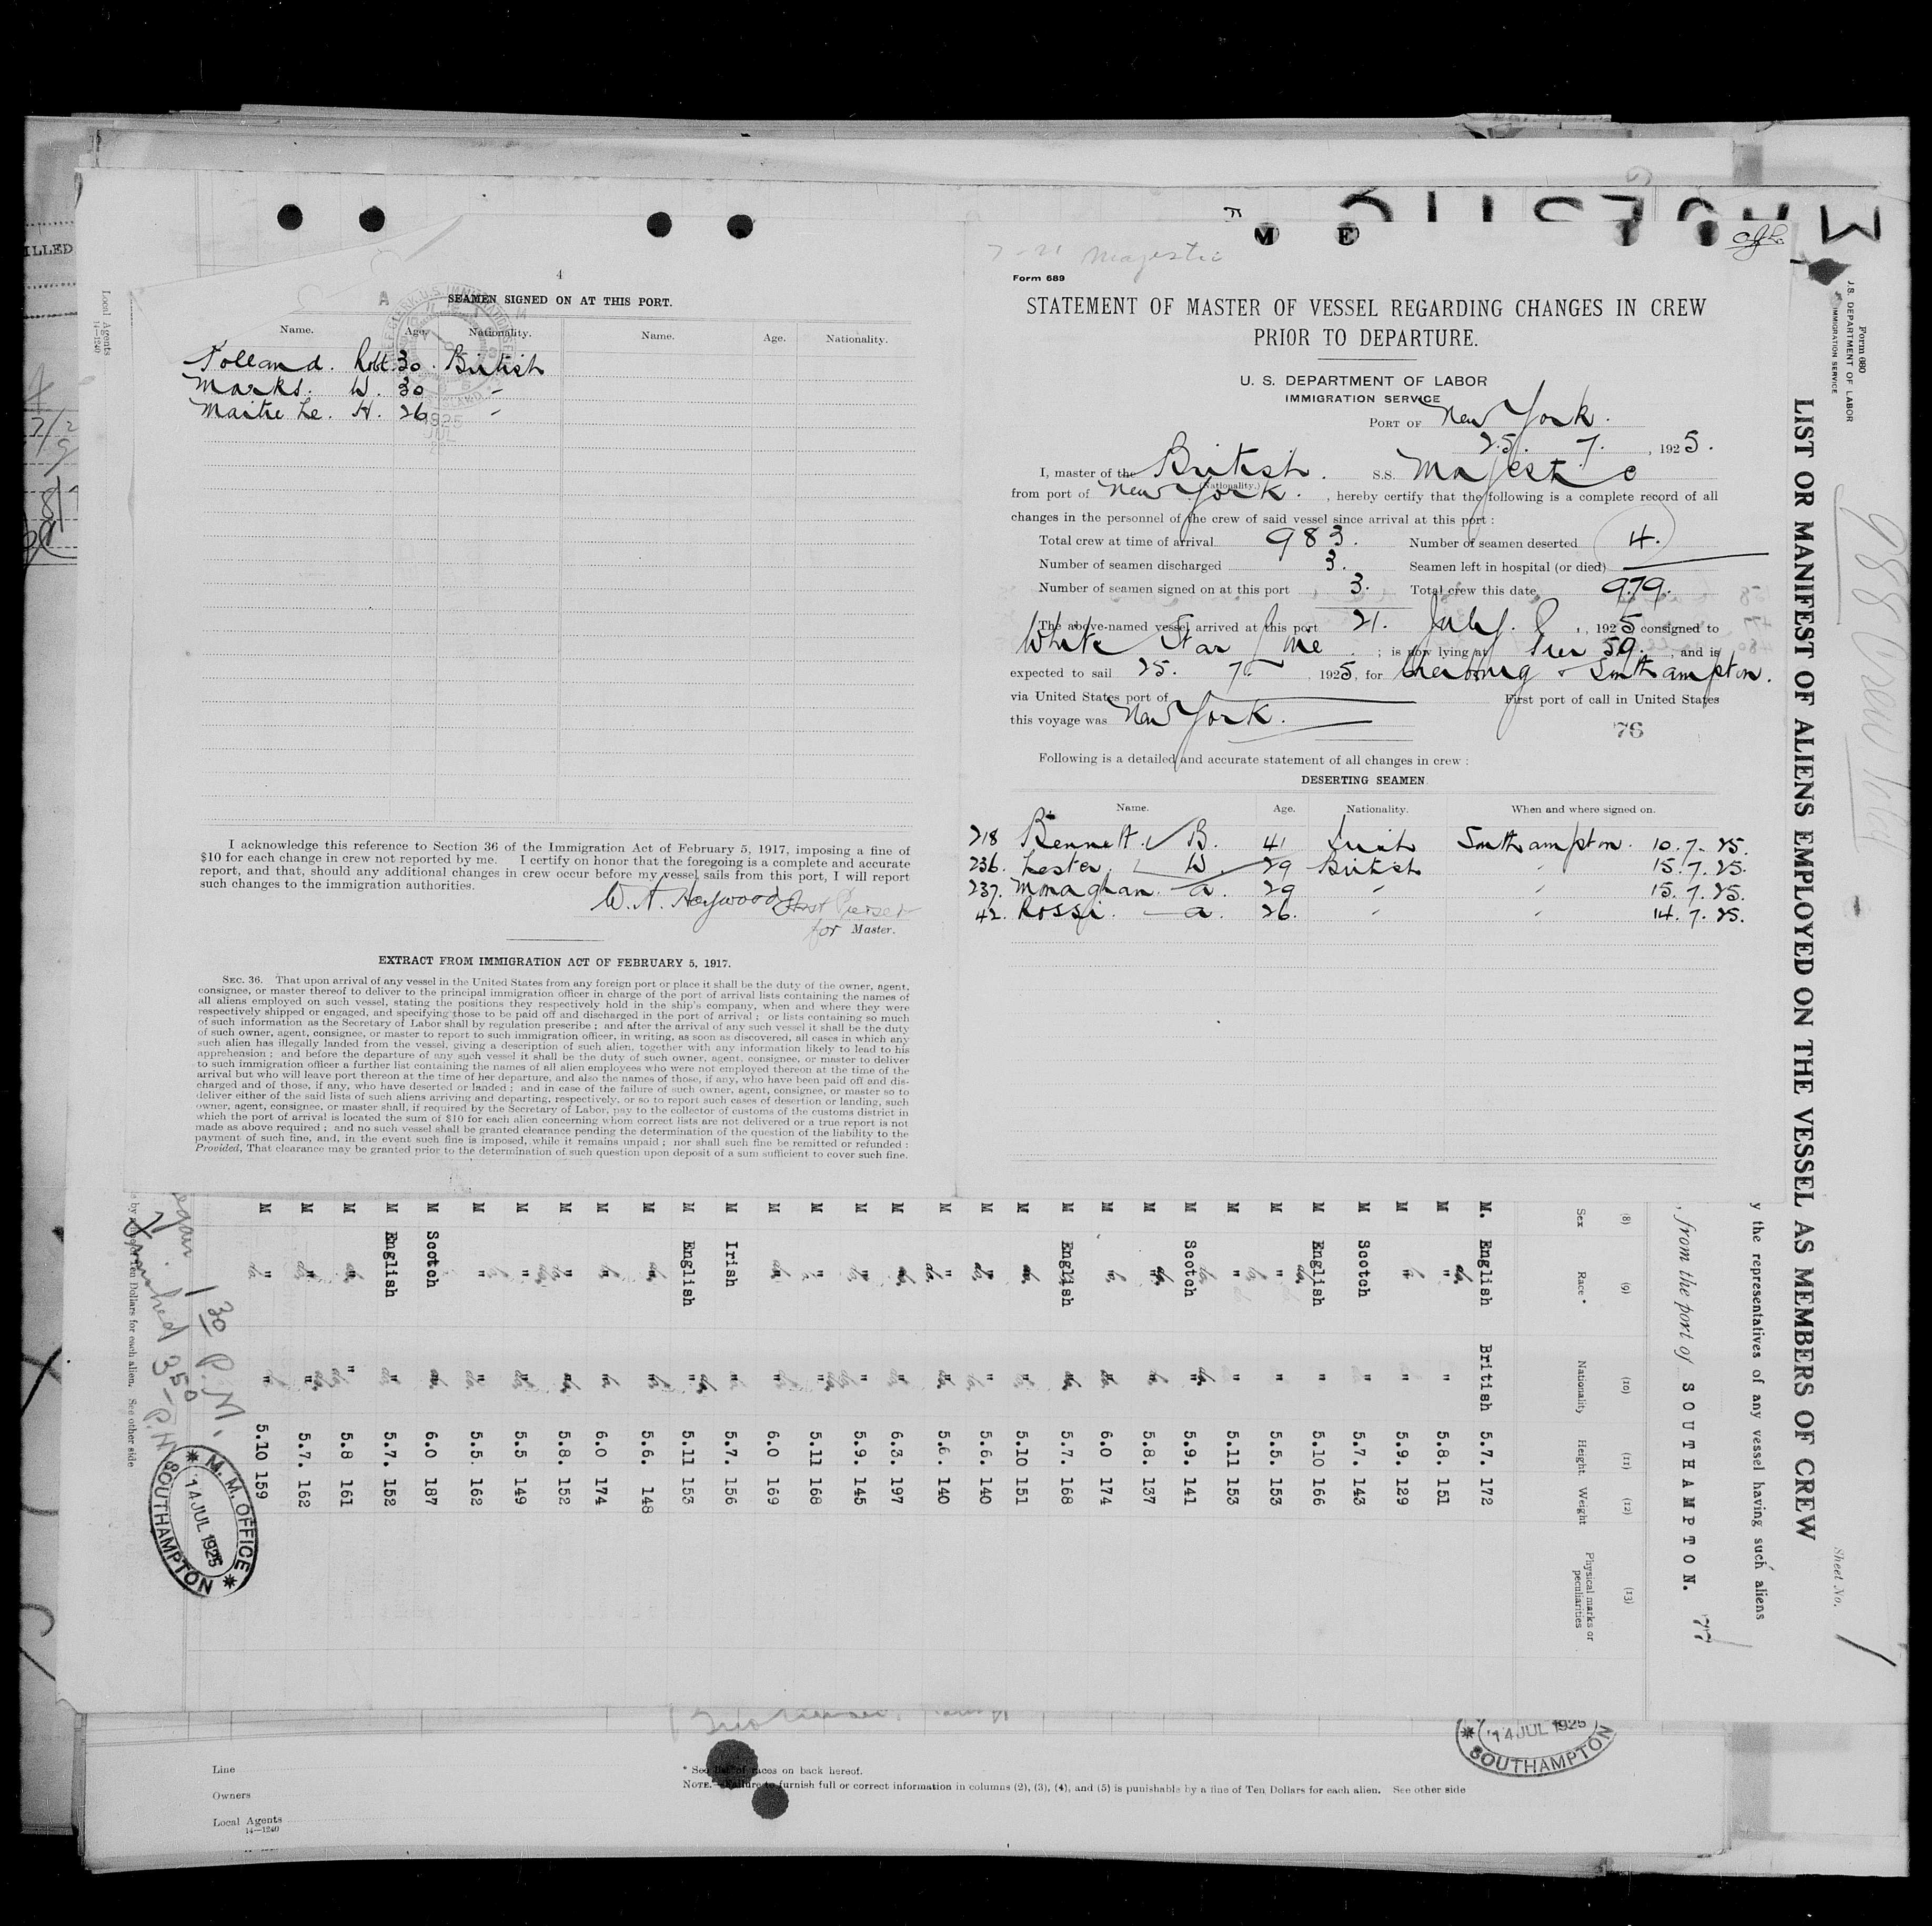 4
SEAMEN SIGNED ON AT THIS PORT.
Name. Age. Nationality. Name. Age. Nationality.
Tolland. Robt. 30. British
Marks. W. 30 "
Maitre Le. H. 26 "
I acknowledge this reference to Section 36 of the Immigration Act of February 5, 1917, imposing a fine of
$10 for each change in crew not reported by me. I certify on honor that the foregoing is a complete and accurate
report, and that, should any additional changes in crew occur before my vessel sails from this port, I will report
such changes to the immigration authorities.
W. A. Heywood Asst Purser
for Master.
EXTRACT FROM IMMIGRATION ACT OF FEBRUARY 5, 1917.
SEC. 36. That upon arrival of any vessel in the United States from any foreign port or place it shall be the duty of the owner, agent,
consignee, or master thereof to deliver to the principal immigration officer in charge of the port of arrival lists containing the names of
all aliens employed on such vessel, stating the positions they respectively hold in the ship's company, when and where they were
respectively shipped or engaged, and specifying those to be paid off and discharged in the port of arrival ; or lists containing so much
of such information as the Secretary of Labor shall by regulation prescribe ; and after the arrival of any such vessel it shall be the duty
of such owner, agent, consignee, or master to report to such immigration officer, in writing, as soon as discovered, all cases in which any
such alien has illegally landed from the vessel, giving a description of such alien, together with any information likely to lead to his
apprehension ; and before the departure of any such vessel it shall be the duty of such owner, agent, consignee, or master to deliver
to such immigration officer a further list containing the names of all alien employees who were not employed thereon at the time of the
arrival but who will leave port thereon at the time of her departure, and also the names of those, if any, who have been paid off and dis-
charged and of those, if any, who have deserted or landed ; and in case of the failure of such owner, agent, consignee, or master so to
deliver either of the said lists of such aliens arriving and departing, respectively, or so to report such cases of desertion or landing, such
owner, agent, consignee, or master shall, if required by the Secretary of Labor, pay to the collector of customs of the customs district in
which the port of arrival is located the sum of $10 for each alien concerning whom correct lists are not delivered or a true report is not
made as above required ; and no such vessel shall be granted clearance pending the determination of the question of the liability to the
payment of such fine, and, in the event such fine is imposed, while it remains unpaid ; nor shall such fine be remitted or refunded :
Provided, That clearance may be granted prior to the determination of such question upon deposit of a sum sufficient to cover such fine.
7-21 Majestic
Form 689
STATEMENT OF MASTER OF VESSEL REGARDING CHANGES IN CREW
PRIOR TO DEPARTURE.
U. S. DEPARTMENT OF LABOR
IMMIGRATION SERVICE
PORT OF New York.
25. 7. , 1925.
I, master of the British. S.S. Majestic
(Nationality.)
from port of New York. , hereby certify that the following is a complete record of all
changes in the personnel of the crew of said vessel since arrival at this port :
Total crew at time of arrival 983. Number of seamen deserted 4.
Number of seamen discharged 3. Seamen left in hospital (or died)
Number of seamen signed on at this port 3. Total crew this date 979.
The above-named vessel arrived at this port 21. July. , 1925 consigned to
White Star Line ; is now lying at Pier 59. , and is
expected to sail 25. 7. 1925, for Cherbourg & Southampton.
via United States port of First port of call in United States
this voyage was New York.
76
Following is a detailed and accurate statement of all changes in crew :
DESERTING SEAMEN.
Name. Age. Nationality. When and where signed on.
218 Bennett. B. 41 Irish Southampton. 10.7.25.
236. Lester. W. 29 British " 15.7.25.
237. Monaghan. A. 29 " " 15.7.25.
42. Rossi. A. 26. " " 14.7.25.
MAJESTIC
Form 680
U.S. DEPARTMENT OF LABOR
IMMIGRATION SERVICE
LIST OR MANIFEST OF ALIENS EMPLOYED ON THE VESSEL AS MEMBERS OF CREW
Sheet No. 1
988 Crew
y the representatives of any vessel having such aliens
, from the port of SOUTHAMPTON. 77
(8) (9) (10) (11) (12) (13)
Sex Race * Nationality Height. Weight Physical marks or peculiarities
M. English British 5.7. 172
M " " 5.8. 151
M " " 5.9. 129
M Scotch " 5.7. 143
M English " 5.10 166
M " " 5.5. 153
M " " 5.11 153
M Scotch " 5.9. 141
M " " 5.8. 137
M " " 6.0 174
M English " 5.7. 168
M " " 5.10 151
M " " 5.6. 140
M " " 5.6. 140
M " " 6.3. 197
M " " 5.9. 145
M " " 5.11 168
M " " 6.0 169
M Irish " 5.7. 156
M English " 5.11 153
M " " 5.6. 148
M " " 6.0 174
M " " 5.8. 152
M " " 5.5 149
M " " 5.5. 162
M Scotch " 6.0 187
M English " 5.7. 152
M " " 5.8 161
M " " 5.7. 162
M " " 5.10 159
1 30 P.M.
Finished 3 50 P.M
M. M. OFFICE
14 JUL 1925
SOUTHAMPTON
Local Agents
14-1240
14 JUL 1925
SOUTHAMPTON
Line
Owners
Local Agents
14-1240
* See list of races on back hereof.
NOTE.—Failure to furnish full or correct information in columns (2), (3), (4), and (5) is punishable by a fine of Ten Dollars for each alien. See other side